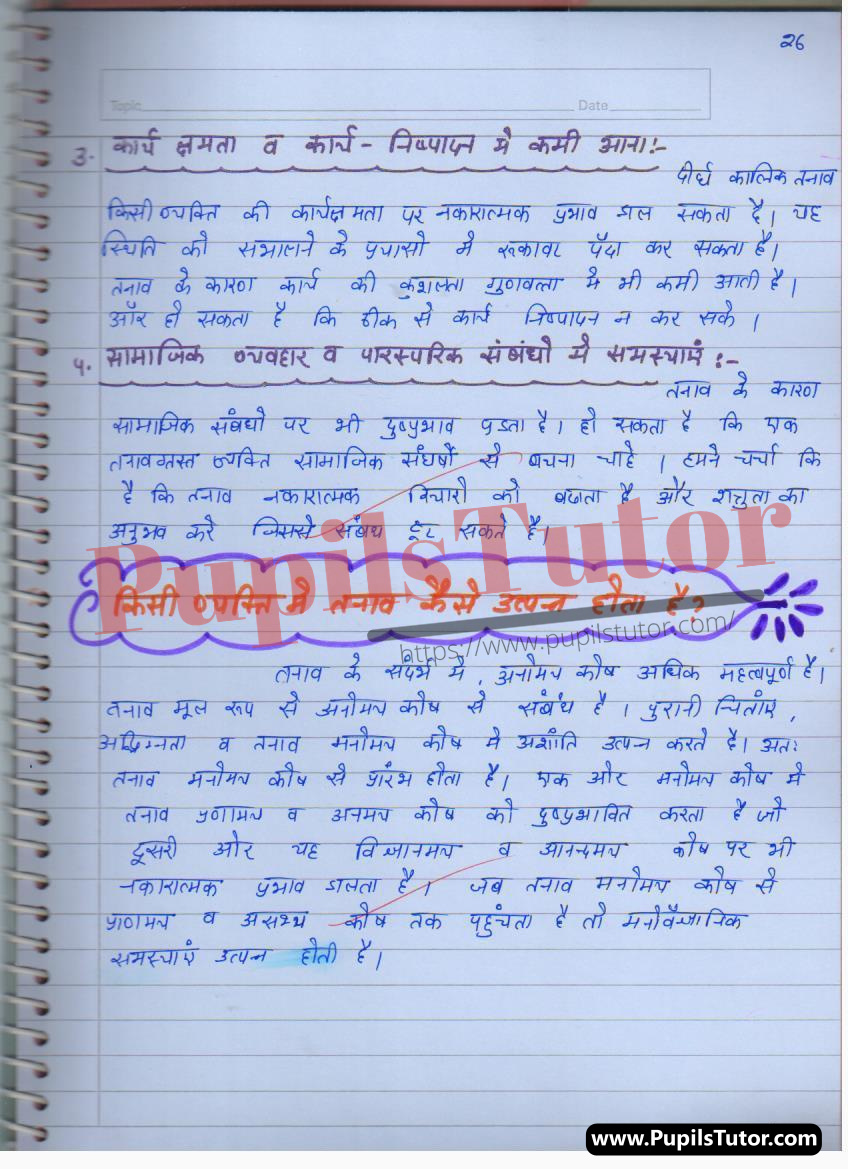 26
Topic
Date
3. कार्य क्षमता व कार्य - निष्पादन मे कमी आना:-
दीर्घ कालिक तनाव
किसी व्यक्ति की कार्यक्षमता पर नकारात्मक प्रभाव डाल सकता है। यह
स्थिति को संभालने के प्रयासो मे रूकावट पैदा कर सकता है।
तनाव के कारण कार्य की कुशलता गुणवत्ता मे भी कमी आती है।
और हो सकता है कि ठीक से कार्य निष्पादन न कर सके।
4. सामाजिक व्यवहार व पारस्परिक संबंधो मे समस्याएं :-
तनाव के कारण
सामाजिक संबंधो पर भी दुष्प्रभाव पडता है। हो सकता है कि एक
तनावग्रस्त व्यक्ति सामाजिक संघर्षों से बचना चाहे। हमने चर्चा कि
है कि तनाव नकारात्मक विचारो को बढाता है और शत्रुता का
अनुभव करे जिससे संबंध टूट सकते है।
PupilsTutor
किसी व्यक्ति मे तनाव कैसे उत्पन्न होता है?
https://www.pupilstutor.com/
तनाव के संदर्भ मे, मनोमय कोष अधिक महत्वपूर्ण है।
तनाव मूल रूप से मनोमय कोष से संबंध है। पुरानी चितांए,
व तनाव मनोमय कोष मे अशांति उत्पन्न करते है। अतः
तनाव मनोमय कोष से प्रारंभ होता है। एक ओर मनोमय कोष मे
तनाव प्रणामय व अनमय कोष को दुष्प्रभावित करता है जो
दूसरी ओर यह विज्ञानमय व आनन्दमय कोष पर भी
नकारात्मक प्रभाव डालता है। जब तनाव मनोमय कोष से
प्राणमय व कोष तक पहुंचता है तो मनोवैज्ञानिक
समस्याएं उत्पन्न होती है।
www.PupilsTutor.com